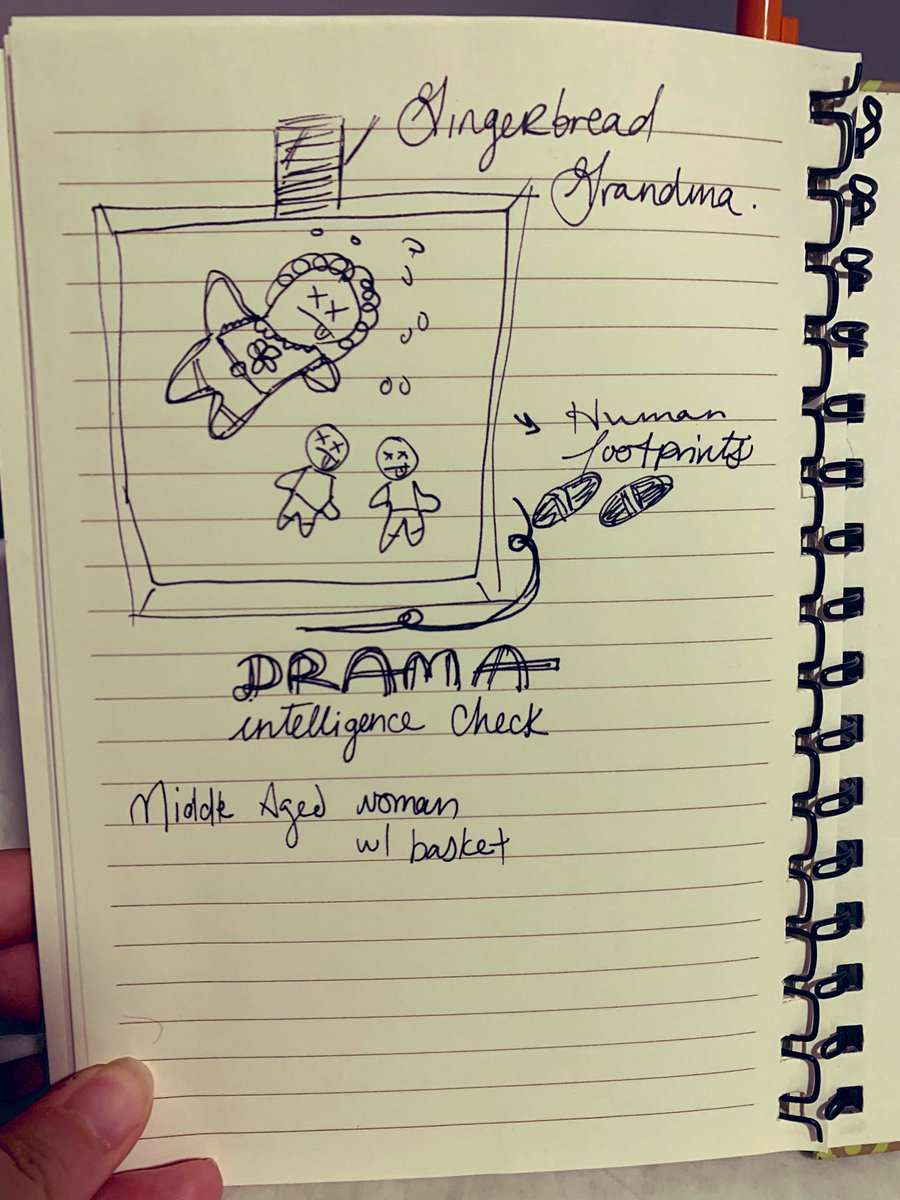 Gingerbread
Grandma.
Human
footprints
DRAMA
intelligence check
Middle Aged woman
w/ basket